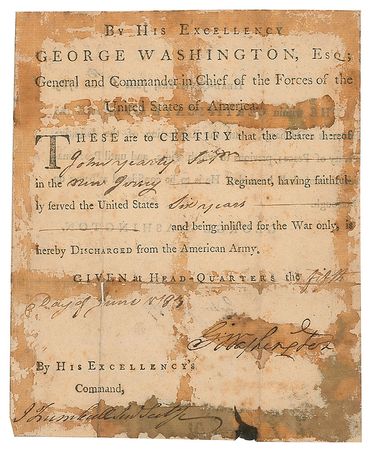 BY HIS EXCELLENCY
GEORGE WASHINGTON, Esq;
General and Commander in Chief of the Forces of the
United States of America.
THESE are to CERTIFY that the Bearer hereof
John
in the New Jersey Regiment, having faithful-
ly served the United States Six years
and being inlisted for the War only, is
hereby DISCHARGED from the American Army.
GIVEN at HEAD-QUARTERS the fifth
Day of June 1783
G Washington
BY HIS EXCELLENCY'S
Command,
J Trumbull Jun Secty